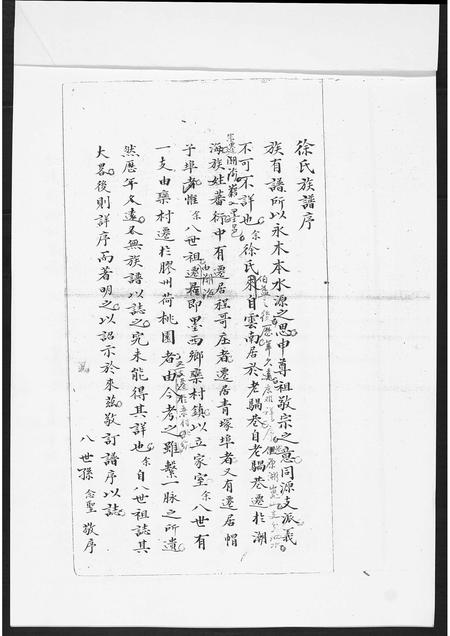 徐氏族譜序
族有譜所以永木本水源之思申尊祖敬宗之意同源支派義
不可不詳也余徐氏來自雲南居於老鴰巷自老鴰巷遷於湖
海族姓蕃衍中有遷居程哥庄者遷居青塚埠者又有遷居帽
子埠者惟余八世祖遷居即墨西鄉欒村鎮以立家室余八世有
一支由欒村遷於膠州荷桃園者由今考之雖繫一脈之所遺
然歷年久遠若無族譜以誌之究未能得其詳也余自八世祖誌其
大畧後則詳序而著明之以詔示於來茲敬訂譜序以誌
八世孫 念聖 敬序